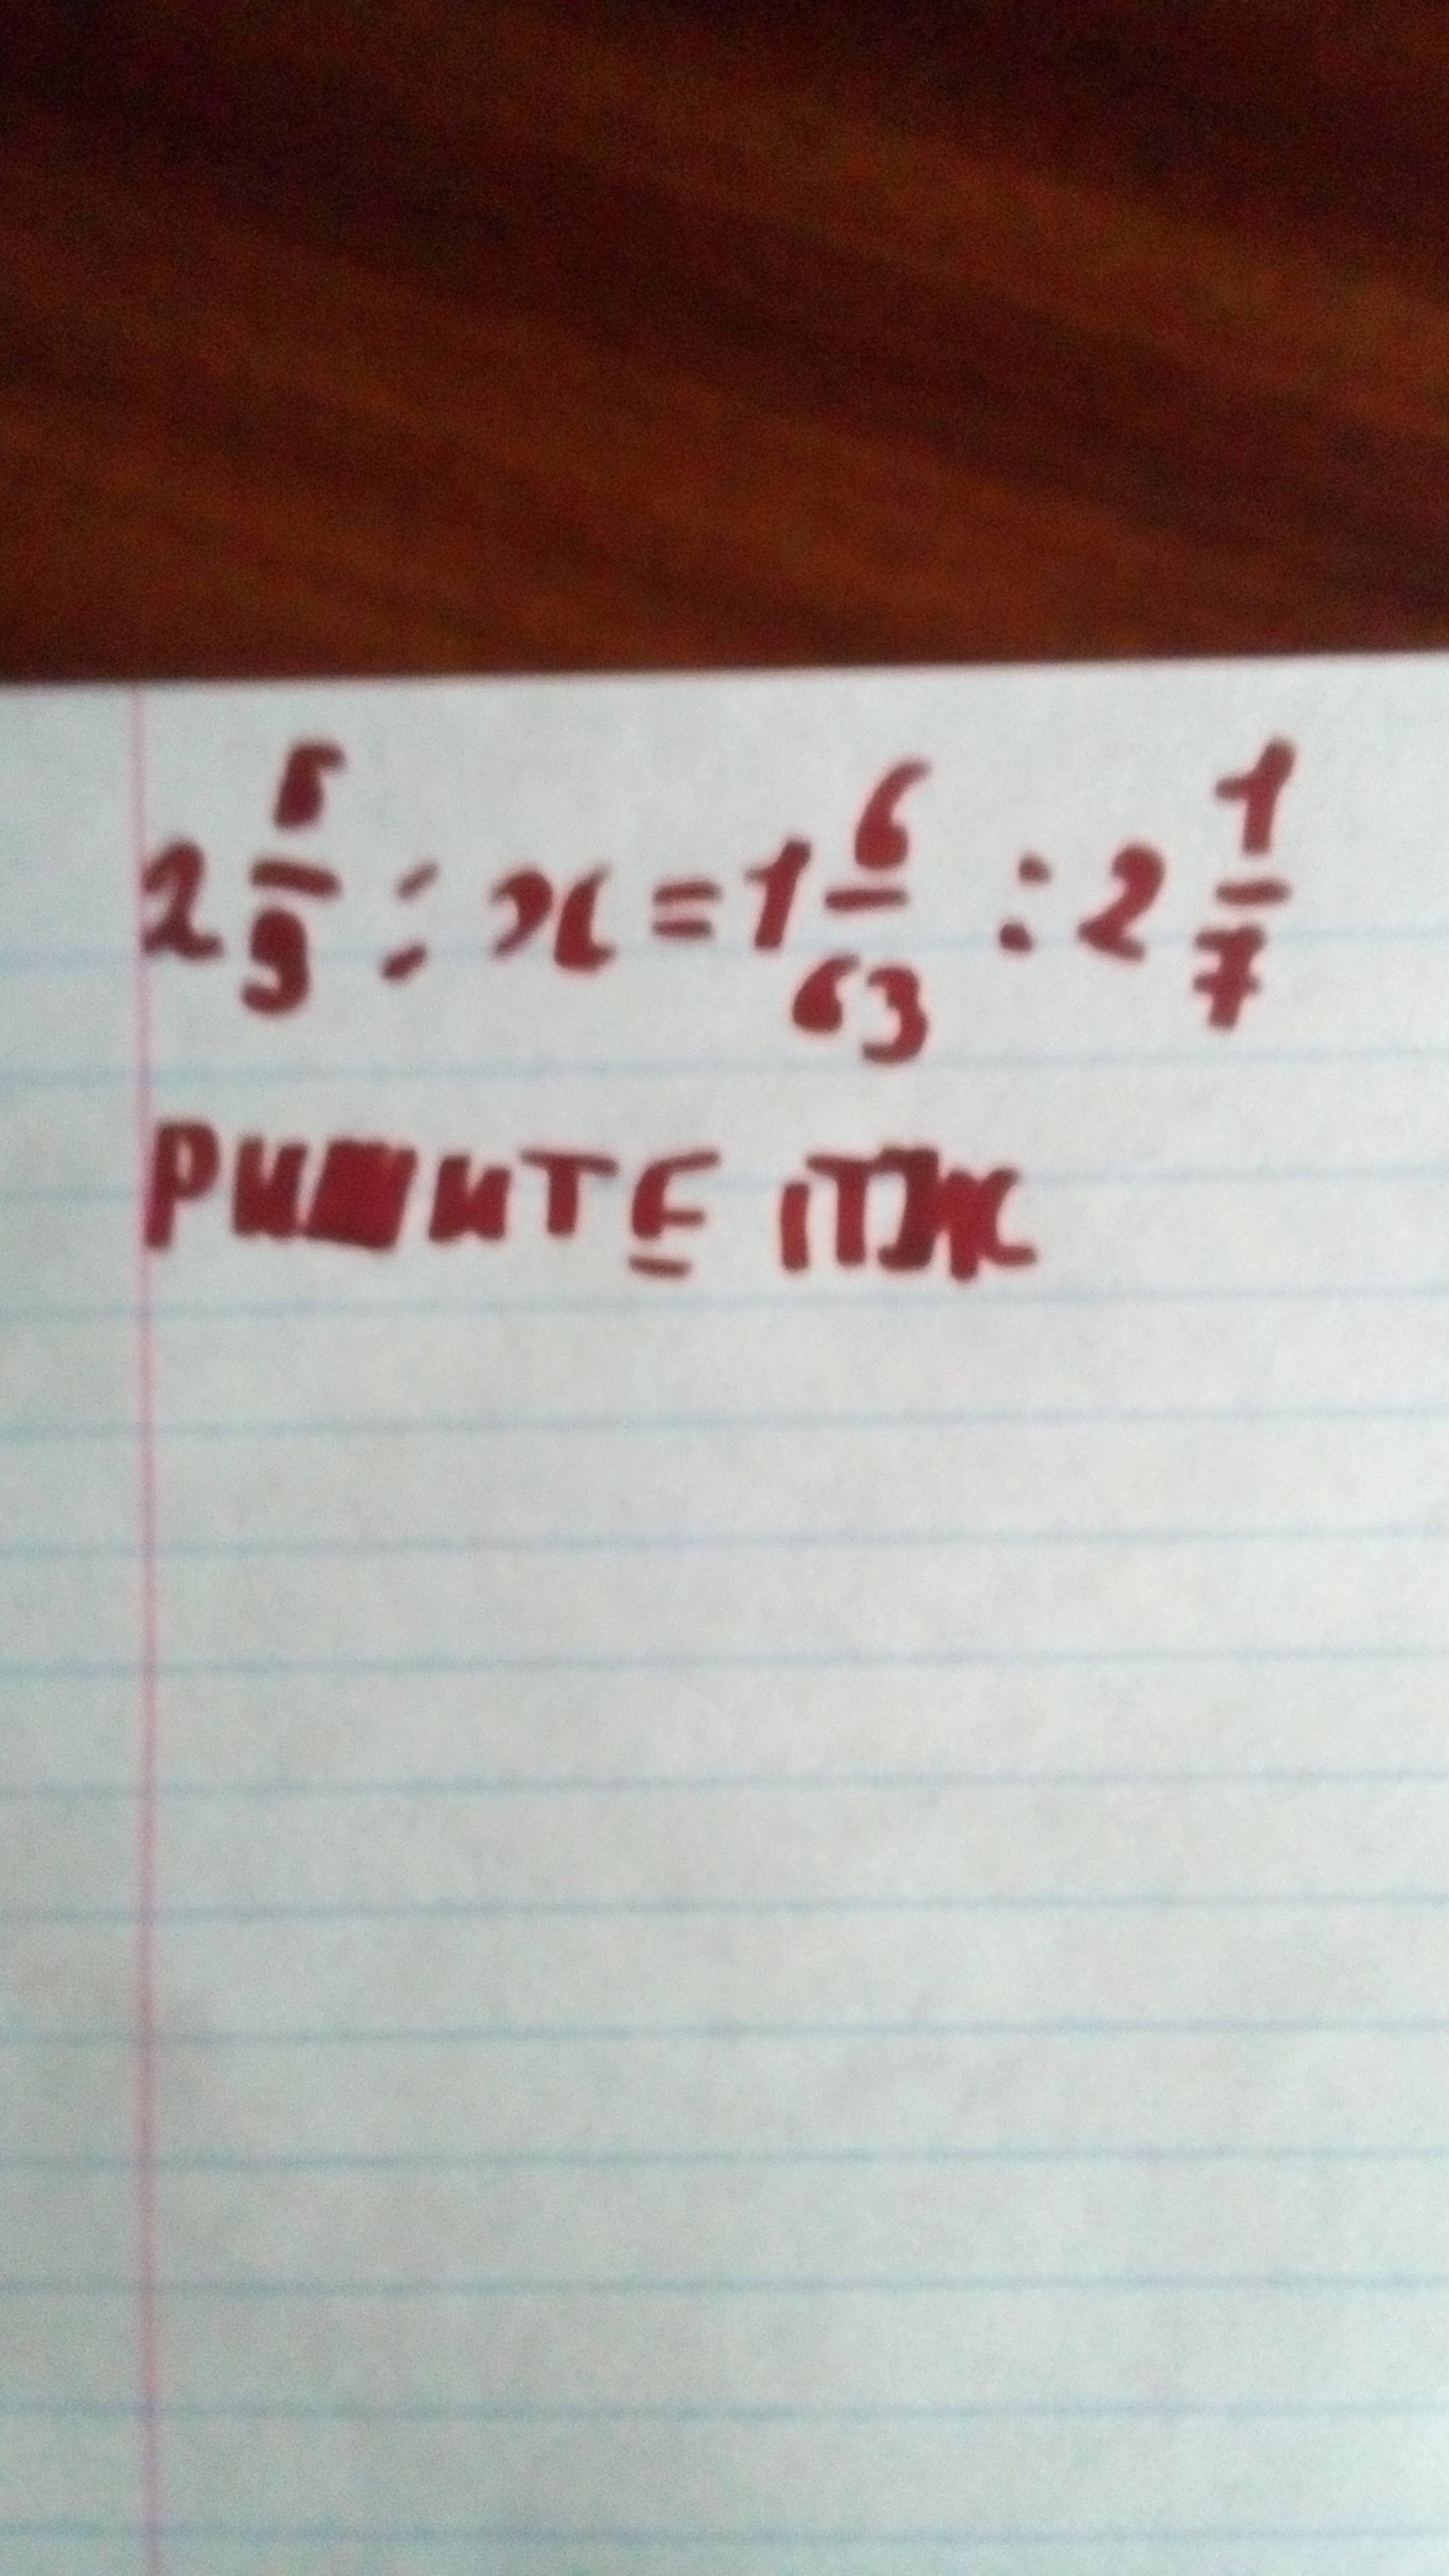 2 5/9 : x = 1 6/63 : 2 1/7
РИШИТЕ ПЖ